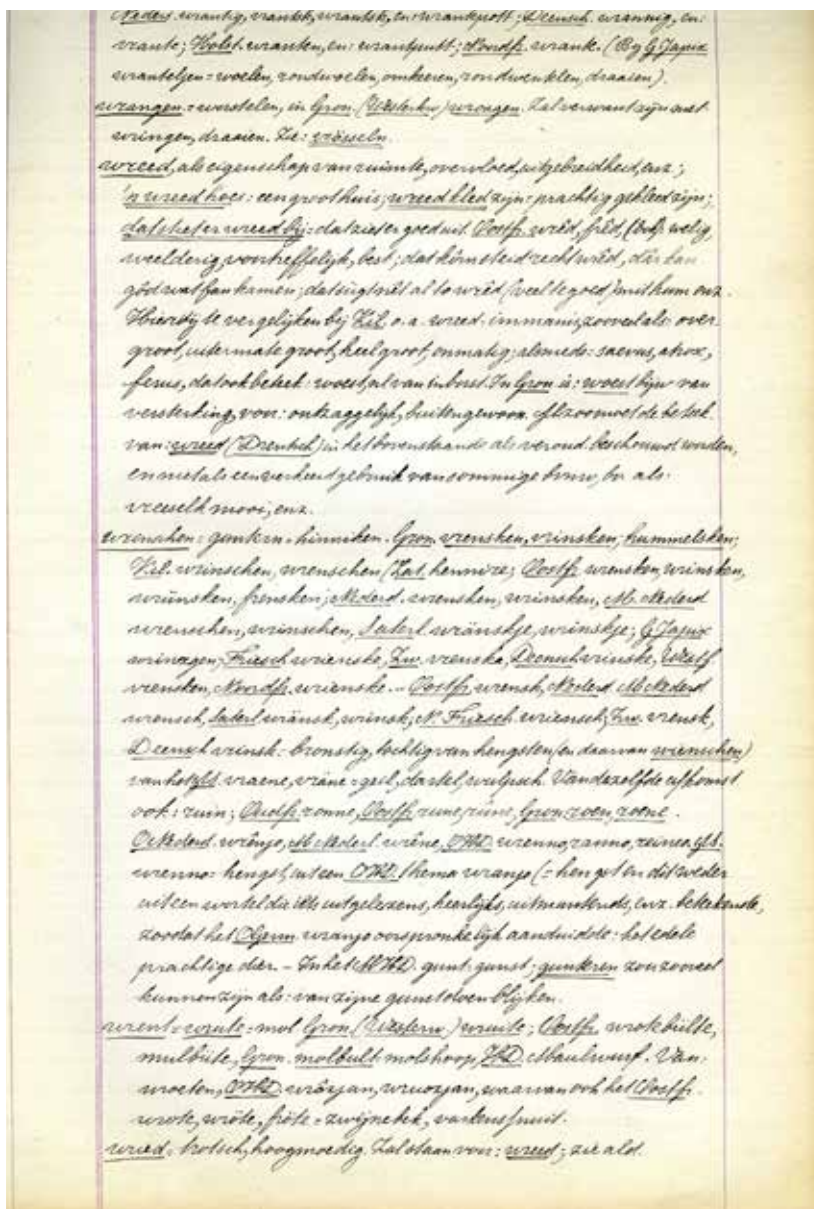 Neders. wrantig, vrantek, wrantsk, en: wrankpott; Deensch. wrannig, en:
vrante; Holst. wranten, en: wrantputt; Noordfr. wrank. (By G. Japix
wranteljen = woelen, rondwoelen, omkeeren, rondwentelen, draaien).
wrangen = worstelen, in Gron. (Westerkw.) wrangen. Zal verwant zijn met
wringen, draaien. Zie: vrösseln.
wreed, als eigenschap van ruimte, overvloed, uitgebreidheid, enz:,
'n wreed hoes: een groot huis; wreed kled zijn = prachtig gekleed zijn;
dat sket er wreed bij = dat ziet er goed uit. Oostfr. wrêd, frêd, (bnb). welig,
weelderig, voortreffelijk, best; dat kôrn steid recht wrêd, där kan
gôd wat fan kamen; dat sügt nêt al to wrêd (veel te goed) mit hum enz.
Hierbij te vergelijken bij Kil. o.a. wreed. immanis, zooveel als: over-
groot, uitermate groot, heel groot, onmatig; alsmede: saevus, atrox,
ferus, dat ook beteek: woest, al van inborst. In Gron. is: woest bijw. van
versterking, voor: ontzaggelijk, buitengewoon. Alzoo moet de beteek.
van: wreed (Drentsch) in het bovenstaande als veroud. beschouwd worden,
en niet als een verkeerd gebruik van sommige bvnw., bv. als:
vreeselk mooi, enz.
wrenschen = gunken = hinniken. Gron. vrensken, vrinsken, hummelsken;
Kil. wrinschen, wrenschen (Lat. hennire; Oostfr. wrensken, wrinsken,
wrünsken, frensken; Nederd. wrensken, wrinsken, M. Nederd
wrenschen, wrinschen, Saterl. wränskje, wrinskje; G. Japix
wrinzgen; Friesch wrienske, Zw. vrenska, Deensch vrinske, Westf.
vrensken, Noordfr. wrienske. – Oostfr. wrensk, Nederd. M. Nederd
wrensch, Saterl. wränsk, wrinsk; N. Friesch. wriensch; Zw. vrensk,
Deensch vrinsk = bronstig, tochtig van hengsten (en daarvan wrenschen)
van hotzelfde vraene, vräne = geil, dartel, wulpsch. Van dezelfde afkomst
ook: ruin; Oudfr. ronne, Oostfr. rune, rüne, Gron. roen, roene.
O. Nederd. wrênjo, M. Nederl. wrêne, OHD. wrenno, ranno, reineo,
wrenno = hengst, uit een OHD. thema wranjo (= hengst en dit weder
uit een wortel die iets uitgelezens, heerlijks, uitmuntends, enz. beteekende,
zoodat het OGerm. wranjo oorspronkelijk aanduidde: het edele
prachtige dier. – In het MHD. gunt: gunst; gunkeren zou zooveel
kunnen zijn als: van zijne gunst doen blijken.
wrent = wrute = mol Gron. (Westerw.) wruite; Oostfr. wrotebülte,
mulbülte, Gron. molbult: molshoop, HD. Maulwurf. Van:
wroeten, OHD. wrôzjan, wruozjan, waarvan ook het Oostfr.
wrote, wröte, fröte = zwijnebek, varkenssnuit.
wried = trotsch, hoogmoedig. Zal staan voor: wreed; zie ald.